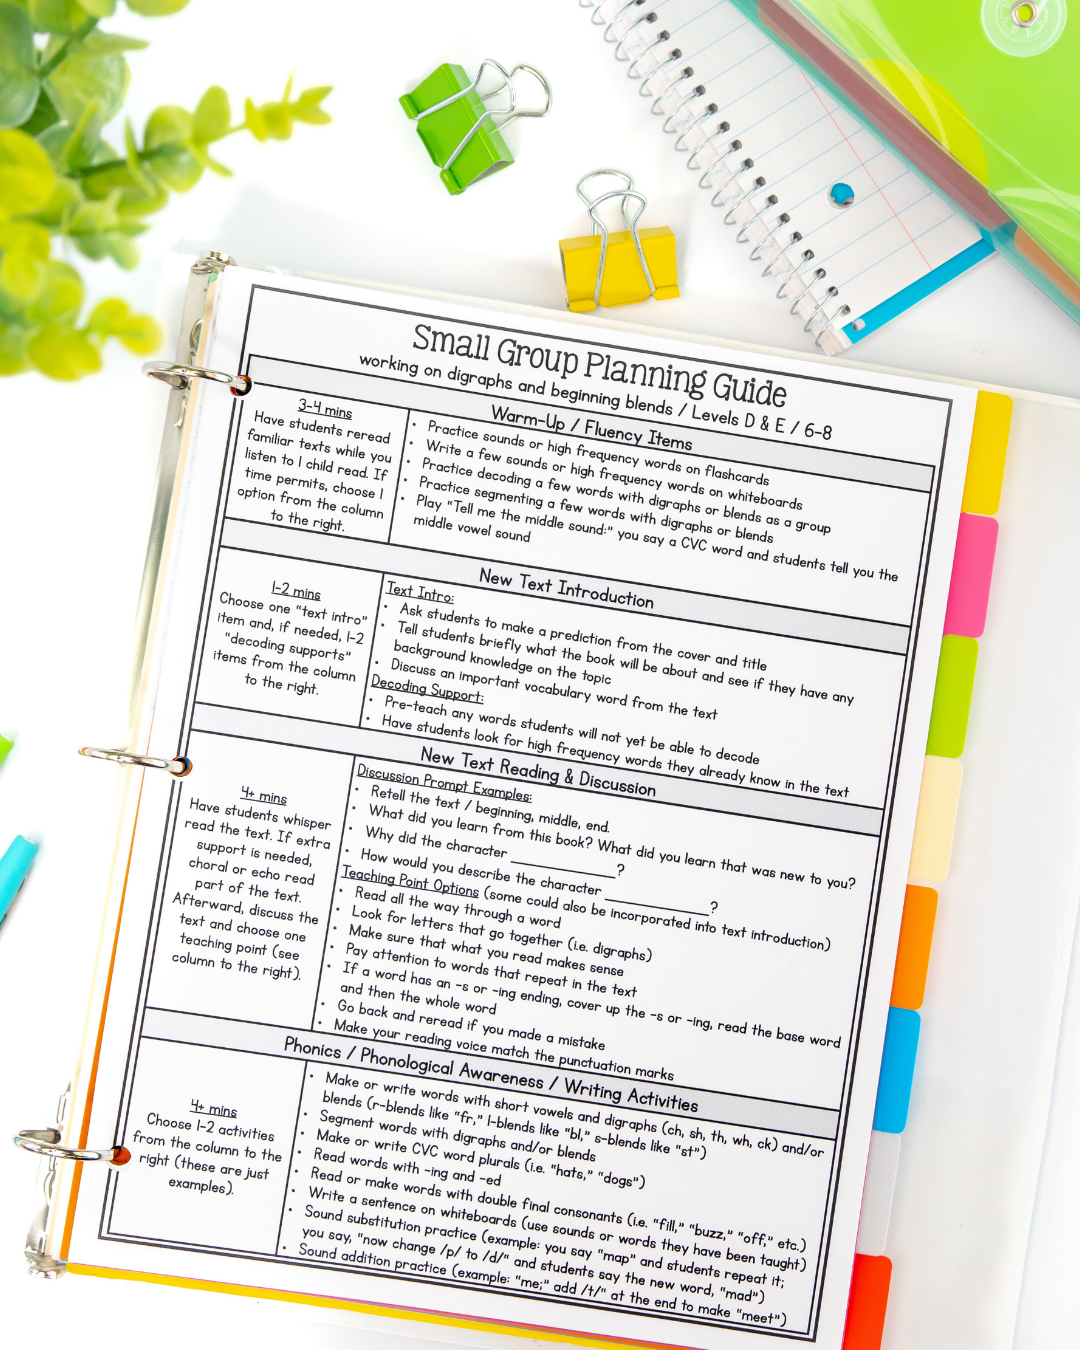 Small Group Planning Guide
working on digraphs and beginning blends / Levels D & E / 6-8
Warm-Up / Fluency Items
3-4 mins
Have students reread
familiar texts while you
listen to 1 child read. If
time permits, choose 1
option from the column
to the right.
• Practice sounds or high frequency words on flashcards
• Write a few sounds or high frequency words on whiteboards
• Practice decoding a few words with digraphs or blends as a group
• Practice segmenting a few words with digraphs or blends
• Play "Tell me the middle sound:" you say a CVC word and students tell you the
middle vowel sound
New Text Introduction
1-2 mins
Choose one "text intro"
item and, if needed, 1-2
"decoding supports"
items from the column
to the right.
Text Intro:
• Ask students to make a prediction from the cover and title
• Tell students briefly what the book will be about and see if they have any
background knowledge on the topic
• Discuss an important vocabulary word from the text
Decoding Support:
• Pre-teach any words students will not yet be able to decode
• Have students look for high frequency words they already know in the text
New Text Reading & Discussion
4+ mins
Have students whisper
read the text. If extra
support is needed,
choral or echo read
part of the text.
Afterward, discuss the
text and choose one
teaching point (see
column to the right).
Discussion Prompt Examples:
• Retell the text / beginning, middle, end.
• What did you learn from this book? What did you learn that was new to you?
• Why did the character ____________?
• How would you describe the character ____________?
Teaching Point Options (some could also be incorporated into text introduction)
• Read all the way through a word
• Look for letters that go together (i.e. digraphs)
• Make sure that what you read makes sense
• Pay attention to words that repeat in the text
• If a word has an -s or -ing ending, cover up the -s or -ing, read the base word
and then the whole word
• Go back and reread if you made a mistake
• Make your reading voice match the punctuation marks
Phonics / Phonological Awareness / Writing Activities
4+ mins
Choose 1-2 activities
from the column to the
right (these are just
examples).
• Make or write words with short vowels and digraphs (ch, sh, th, wh, ck) and/or
blends (r-blends like "fr," l-blends like "bl," s-blends like "st")
• Segment words with digraphs and/or blends
• Make or write CVC word plurals (i.e. "hats," "dogs")
• Read words with -ing and -ed
• Read or make words with double final consonants (i.e. "fill," "buzz," "off," etc.)
• Write a sentence on whiteboards (use sounds or words they have been taught)
• Sound substitution practice (example: you say "map" and students repeat it;
you say, "now change /p/ to /d/" and students say the new word, "mad")
• Sound addition practice (example: "me;" add /t/" at the end to make "meet")